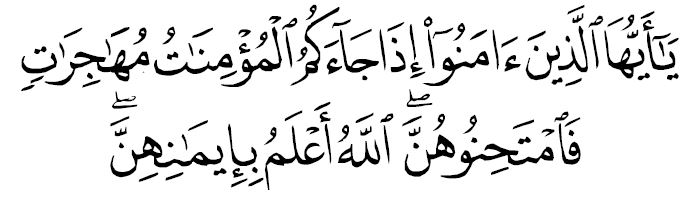 يَـٰٓأَيُّهَا ٱلَّذِينَ ءَامَنُوٓا۟ إِذَا جَآءَكُمُ ٱلْمُؤْمِنَـٰتُ مُهَـٰجِرَٰتٍ
فَٱمْتَحِنُوهُنَّ ۖ ٱللَّهُ أَعْلَمُ بِإِيمَـٰنِهِنَّ ۖ